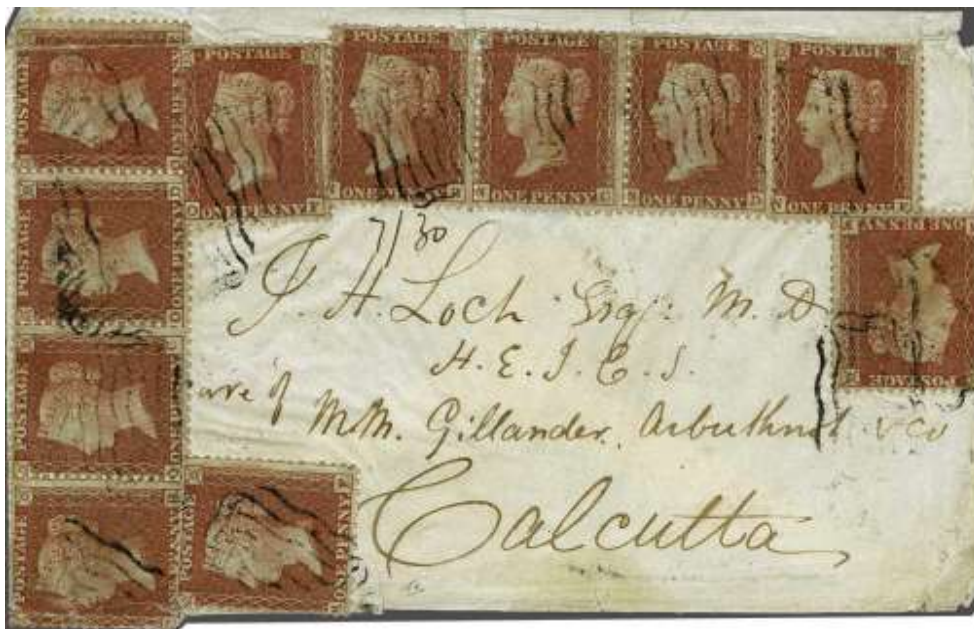 POSTAGE
ONE PENNY
POSTAGE
ONE PENNY
POSTAGE
ONE PENNY
POSTAGE
ONE PENNY
POSTAGE
ONE PENNY
POSTAGE
ONE PENNY
POSTAGE
ONE PENNY
POSTAGE
ONE PENNY
POSTAGE
ONE PENNY
POSTAGE
ONE PENNY
ONE PENNY
7/30
J. H. Loch Esqr: M. D
H. E. I. C. S.
Care of MM. Gillander, Arbuthnot & Co
Calcutta